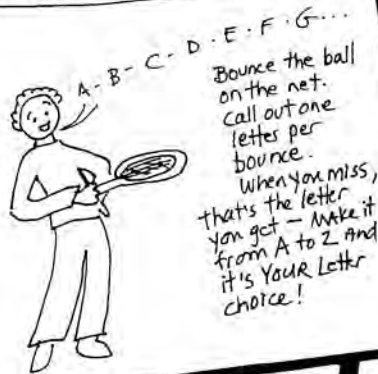 A - B - C - D . E . F . G ...
Bounce the ball
on the net.
Call out one
letter per
bounce.
When you miss,
that's the letter
you get – Make it
from A to Z And
it's YOUR Letter
choice!